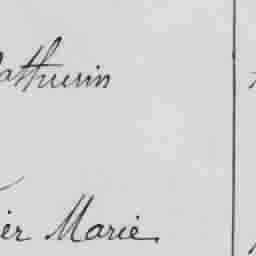 athurin
ier Marie